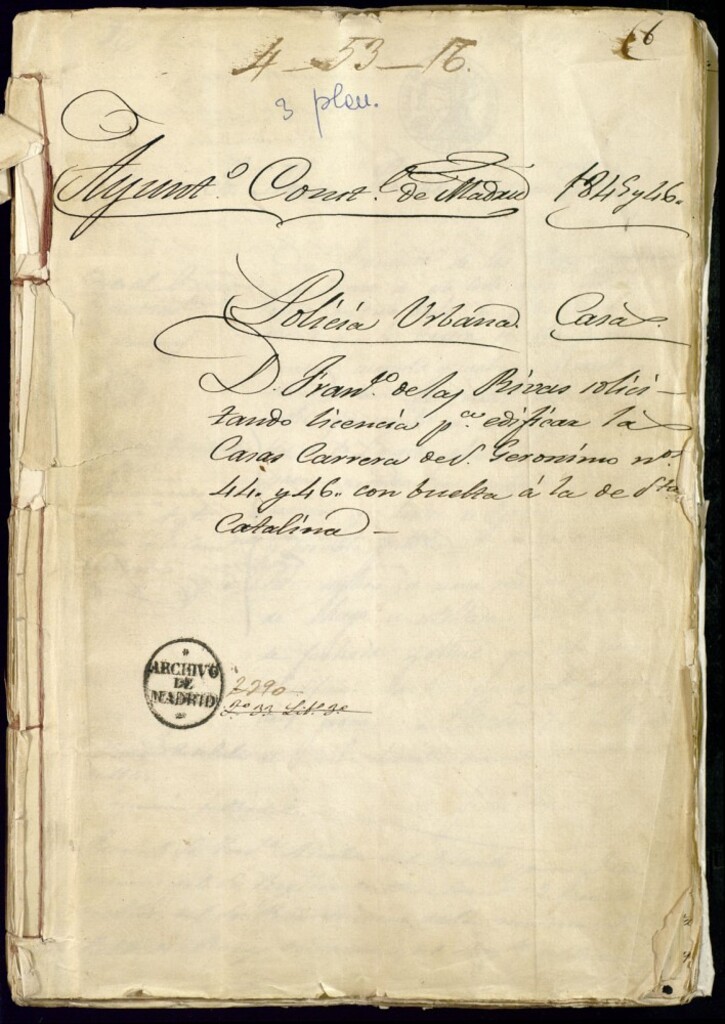 66
4-53-16.
3 plan.
Ayunt.º Const.l de Madrid 1845 y 46.
Policía Urbana. Casas.
D. Fran.co de las Rivas solici-
tando licencia p.a edificar la
Casas Carrera de S. Geronimo n.os
44. y 46. con buelta á la de S.ta
Catalina -
ARCHIVO
DE
MADRID
2290